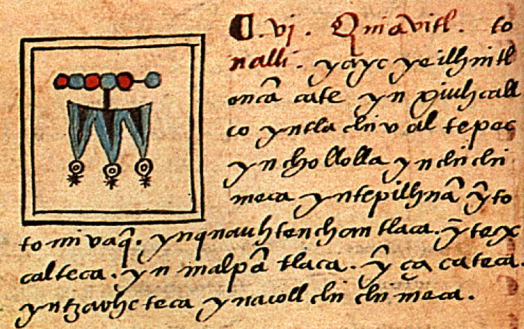 C. vj. Quiavitl. to
nalli. yeilhuitl
oncã cate yn xiuhcall
co yntlachivaltepec
yn chollolla ynchichi
meca yntepilhuã ỹto
tomivaq̃. ynquauhtenchantlaca. ỹtex
calteca. yn malpãtlaca. ỹ çacateca.
yntzavhcteca ynacollchichimeca.